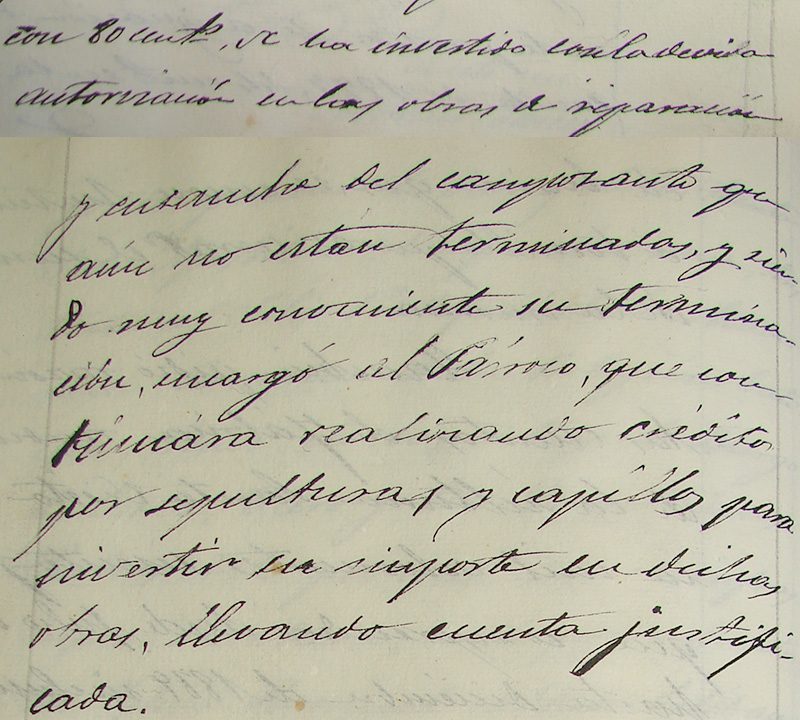 con 80 cent.s, se ha invertido con la devida
autorización en las obras de reparación
y ensanche del camposanto que
aún no están terminados, y sien-
do muy conveniente su termina-
ción, encargó al Párroco, que con-
tinuára realizando créditos
por sepulturas y capillos para
invertir su importe en dichas
obras, llevando cuenta justifi-
cada.